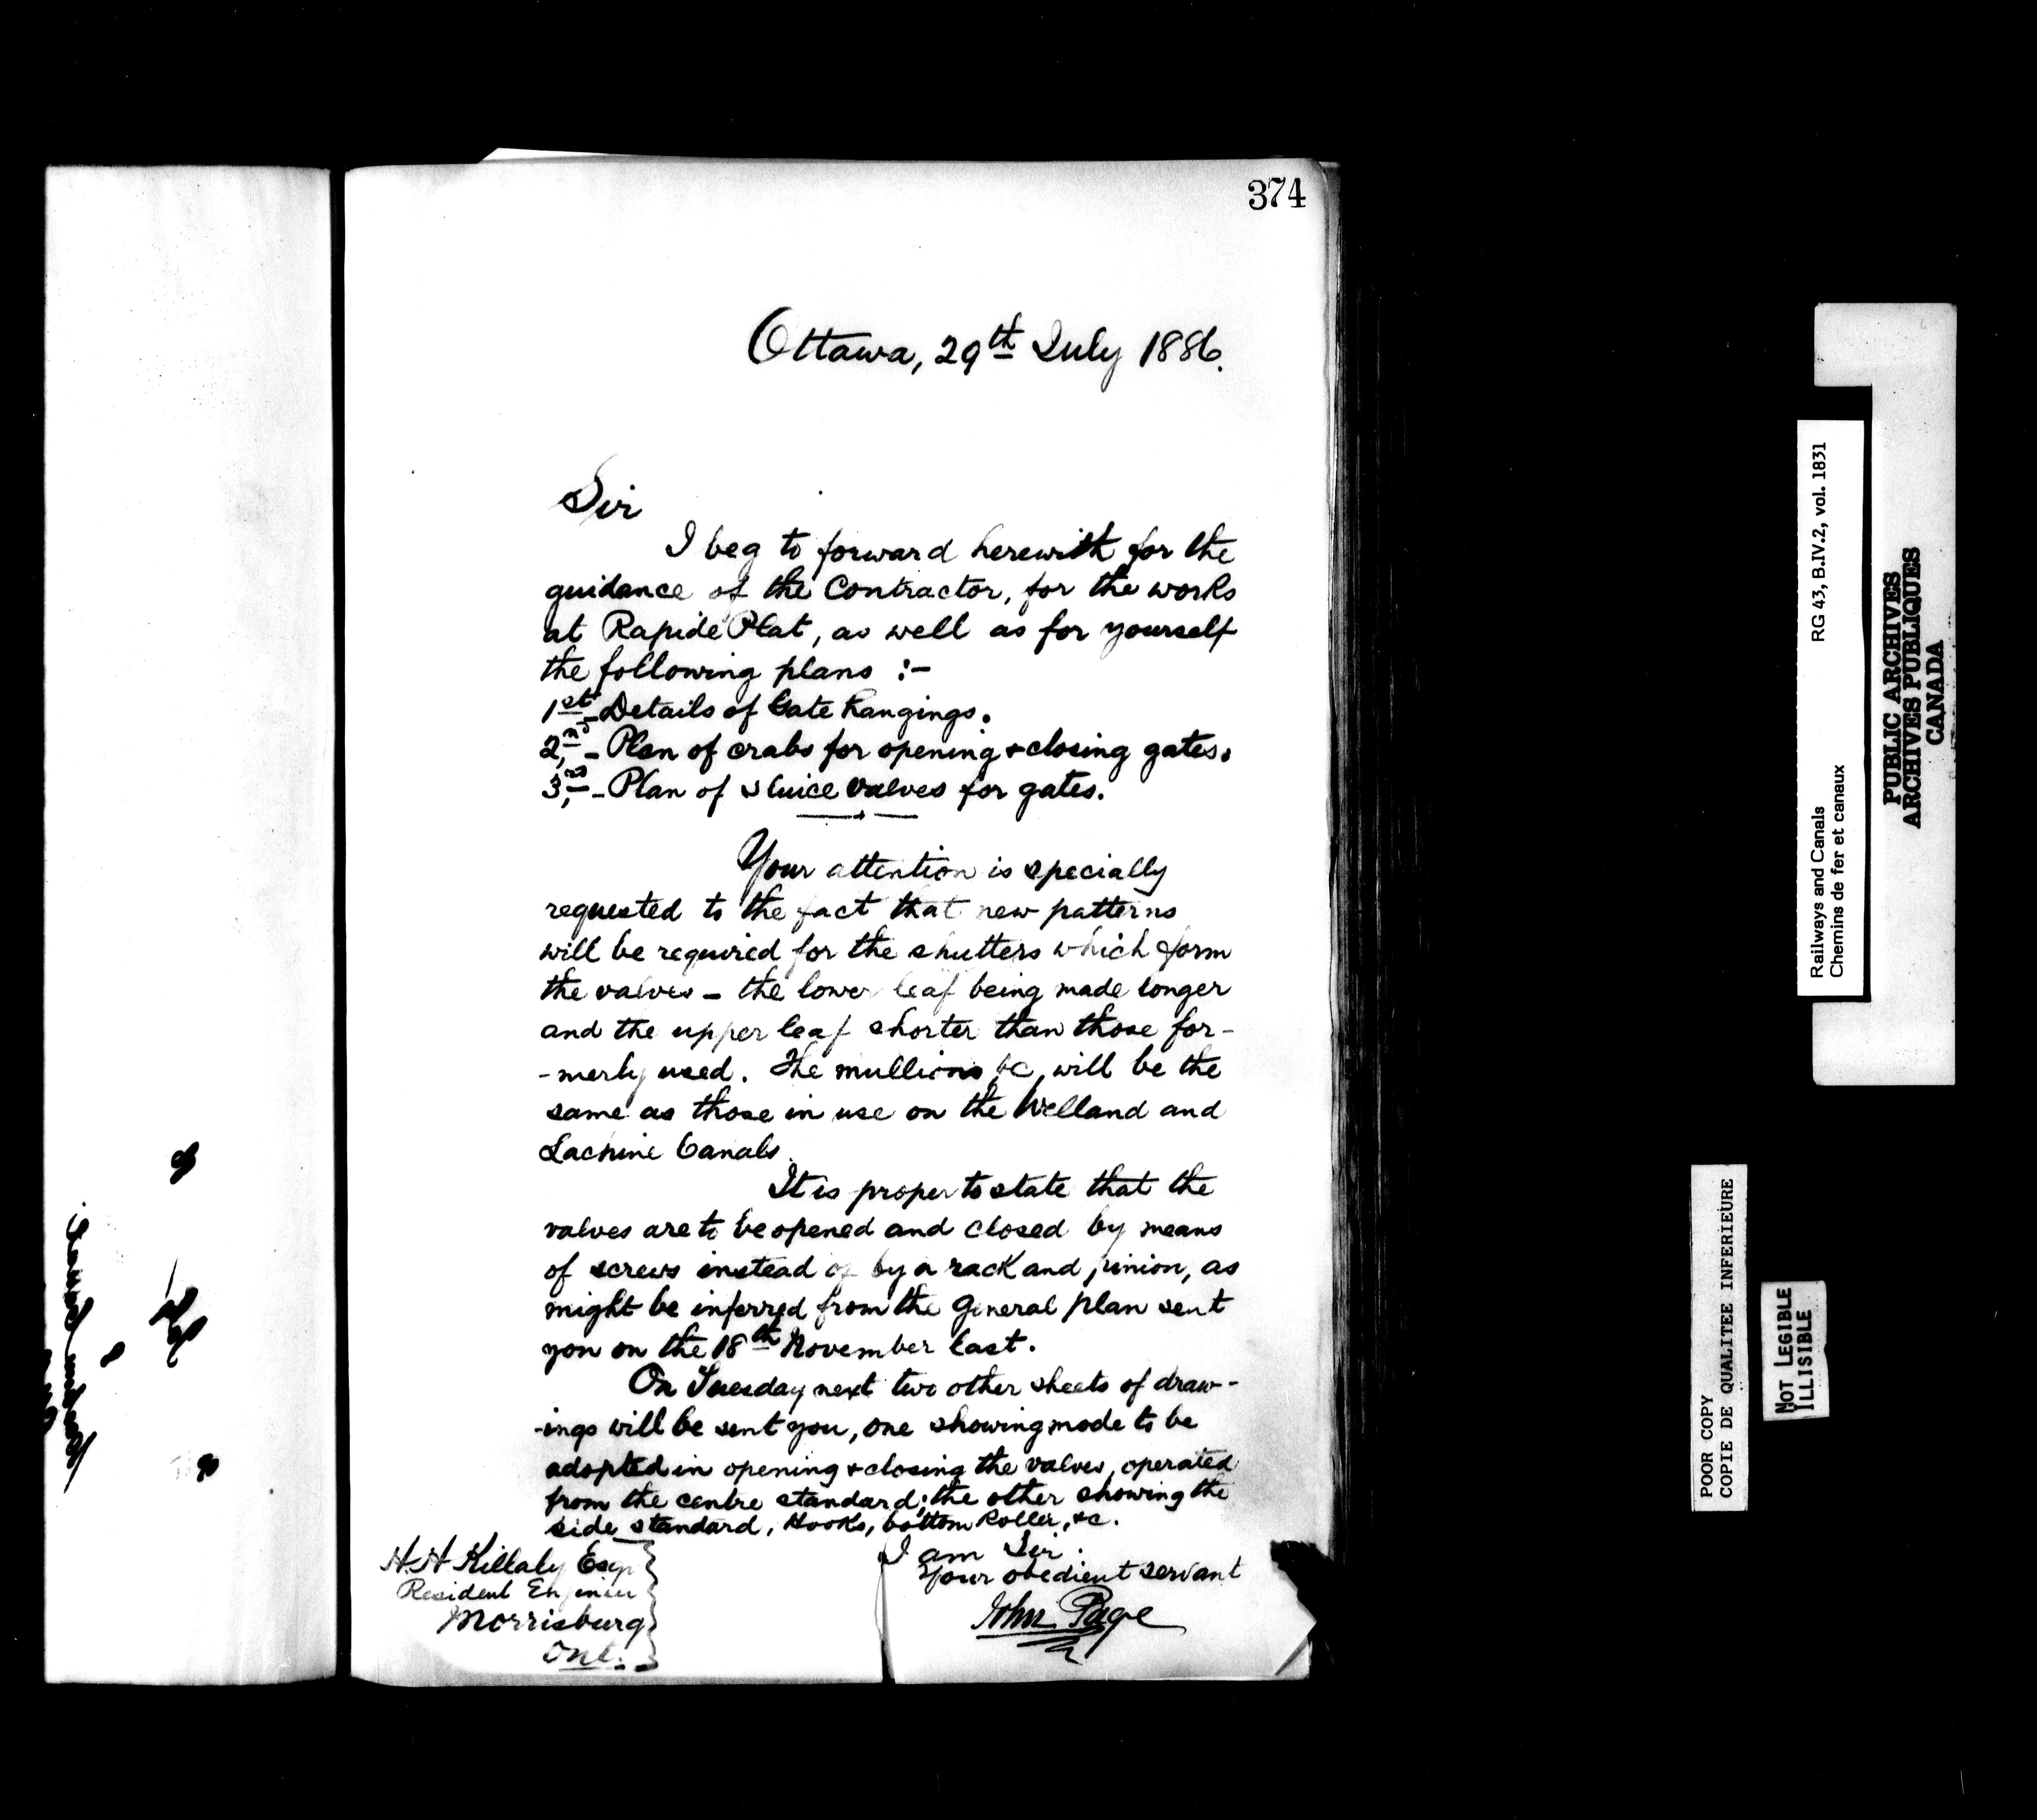 374
Ottawa, 29th July 1886.
Sir
I beg to forward herewith for the
guidance of the Contractor, for the works
at Rapide Plat, as well as for yourself
the following plans :-
1st - Details of Gate hangings.
2nd - Plan of crabs for opening & closing gates.
3rd - Plan of sluice valves for gates.
Your attention is specially
requested to the fact that new patterns
will be required for the shutters which form
the valves - the lower leaf being made longer
and the upper leaf shorter than those for-
-merly used. The mullions, &c, will be the
same as those in use on the Welland and
Lachine Canals.
It is proper to state that the
valves are to be opened and closed by means
of screws instead of by a rack and pinion, as
might be inferred from the general plan sent
you on the 18th November last.
On Tuesday next two other sheets of draw-
-ings will be sent you, one showing mode to be
adopted in opening & closing the valves, operated
from the centre standard; the other showing the
side standard, Hooks, bottom Roller, &c.
I am Sir.
Your obedient servant
John Page
H. H Killaly Esq
Resident Engineer
Morrisburg
Ont.
Railways and Canals RG 43, B.IV.2, vol. 1831
Chemins de fer et canaux
PUBLIC ARCHIVES
ARCHIVES PUBLIQUES
CANADA
POOR COPY
COPIE DE QUALITEE INFERIEURE
NOT LEGIBLE
ILLISIBLE